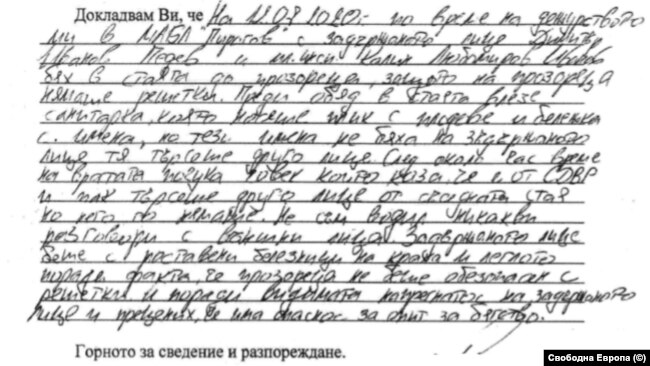 Докладвам Ви, че На 12.07.2020г. по време на дежурството
ми в МБАЛ "Пирогов" с задържаното лице Димитър
и мл. инсп. Калин Любомиров
бях в стаята до прозореца, защото на прозореца
нямаше решетки. Преди обяд в стаята влезе
санитарка, която носеше плик с плодове и бележка
с имена, но тези имена не бяха на задържаното
лице тя търсеше друго лице. След около час време
на вратата почука човек който каза че е от СДВР
и пак търсеше друго лице от съседната стая
но него го нямаше. Не съм водил никакви
разговори с външни лица. Задържаното лице
беше с поставени белезници на крака и леглото
поради факта че прозореца не беше обезопасен с
решетки и поради видимата напрегнатос на задържаното
лице и прецених, че има опаснос за опит за бягство.
Горното за сведение и разпореждане.
Свободна Европа (©)